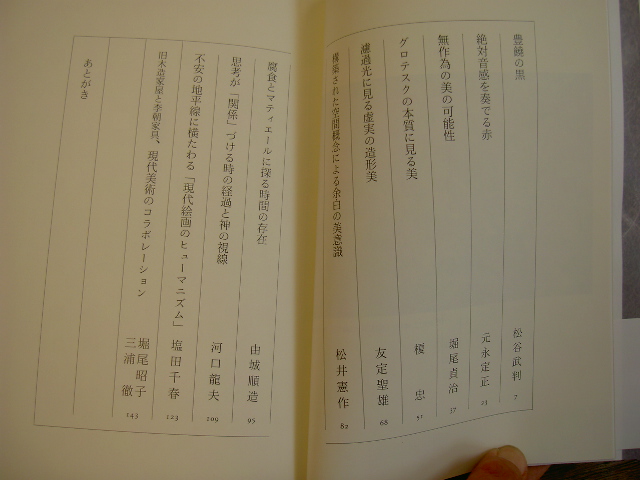 豊饒の黒 松谷武判 7
絶対音感を奏でる赤 元永定正 23
無作為の美の可能性 堀尾貞治 37
グロテスクの本質に見る美 榎 忠 51
濾過光に見る虚実の造形美 友定聖雄 68
構築された空間概念による余白の美意識 松井憲作 82
腐食とマティエールに探る時間の存在 由城順造 95
思考が「関係」づける時の経過と神の視線 河口龍夫 109
不安の地平線に横たわる「現代絵画のヒューマニズム」 塩田千春 123
旧木造家屋と李朝家具、現代美術のコラボレーション 堀尾昭子 三浦 徹 143
あとがき